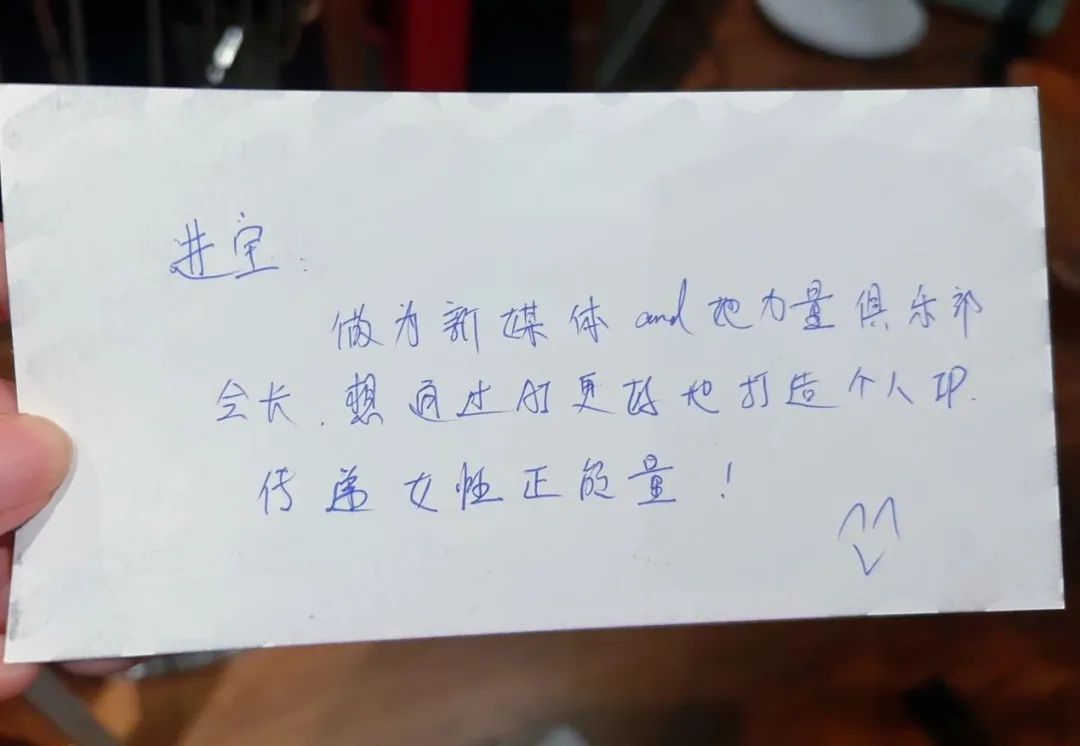 进宝:
做为新媒体and她力量俱乐部
会长.想通过AI更好地打造个人IP.
传递女性正能量!